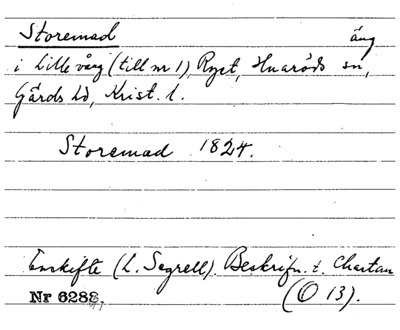 Storemad äng
i Lille vång (till nr 1), Ryet, Huaröds sn,
Gärds hd, Krist. l.
Storemad 1824.
Enskifte (L. Segrell). Beskrifn. t. Chartan
Nr 6288. (O 13).